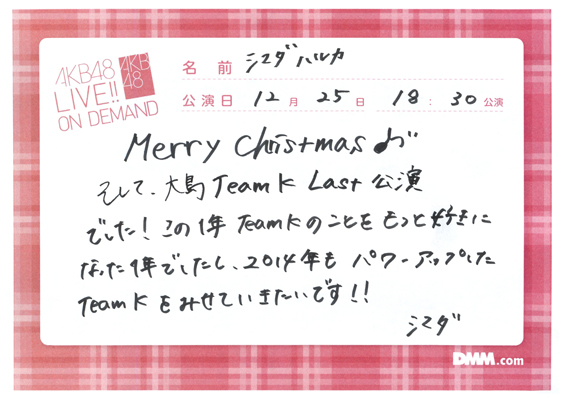 AKB48
LIVE!!
ON DEMAND
AKB
48
名前 シマダハルカ
公演日 12月25日 18:30公演
Merry Christmas
そして、大島 Team K Last 公演
でした!この1年 Team Kのことをもっと好きに
なった1年でしたし、2014年も パワーアップした
Team K をみせていきたいです!!
シマダ
DMM.com